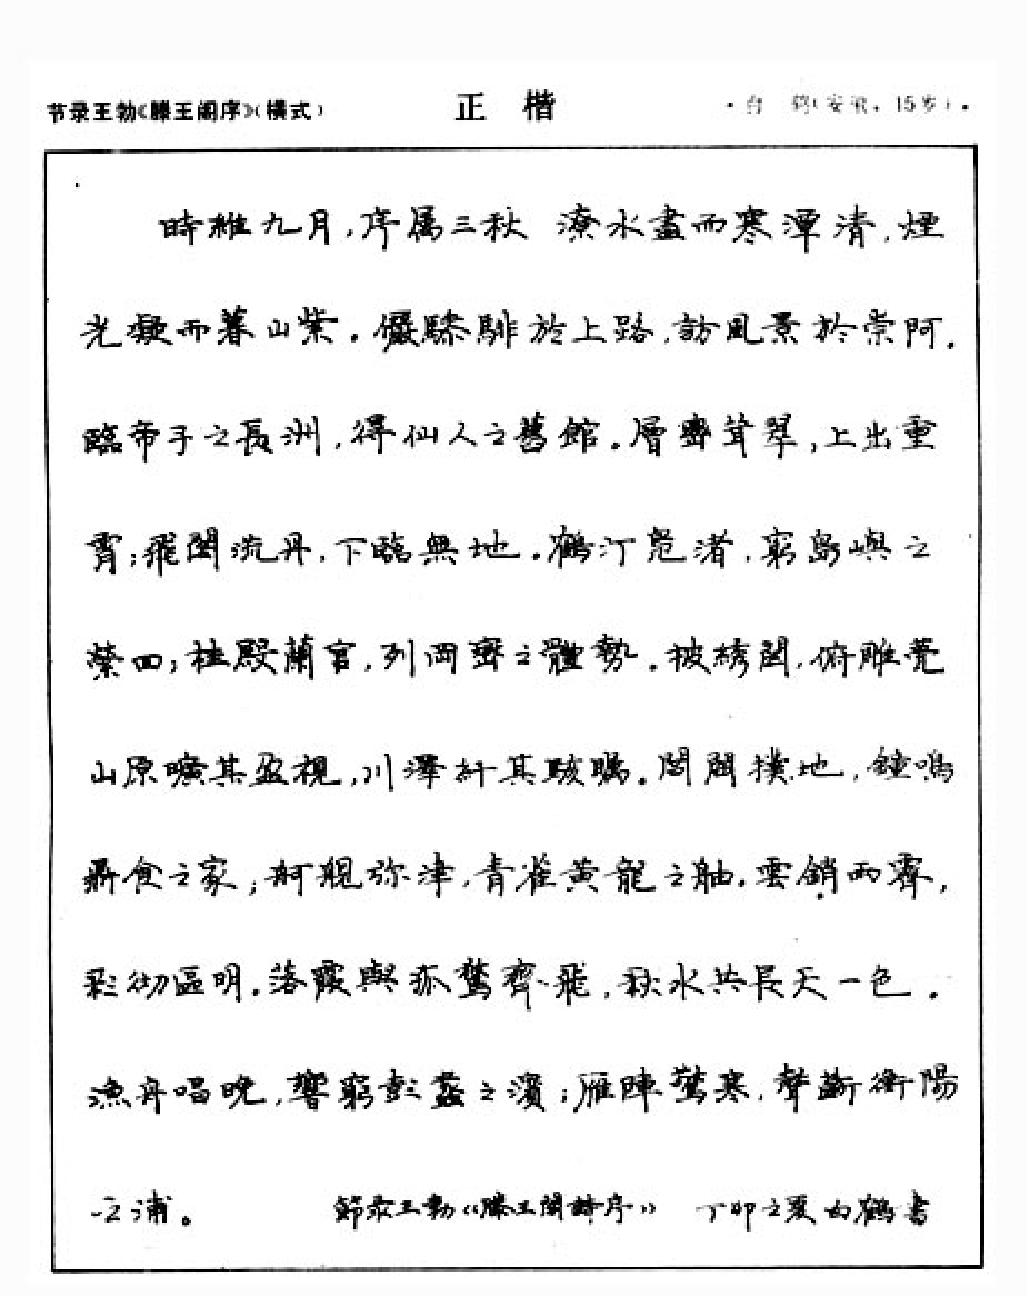 节录王勃《滕王阁序》(横式) 正 楷 ·白 鹤(安徽,15岁)·
時維九月,序属三秋 潦水盡而寒潭清,煙
光凝而暮山紫。儼驂騑於上路,訪風景於崇阿.
臨帝子之長洲,得仙人之舊館。層巒聳翠,上出重
霄;飛閣流丹,下臨無地。鶴汀凫渚,窮島嶼之
縈回;桂殿蘭宫,列岡巒之體勢。披綉闥,俯雕甍
山原曠其盈視,川澤紆其駭矚。閭閻撲地,鐘鳴
鼎食之家;舸艦弥津,青雀黄龍之舳。雲銷雨霽,
彩彻區明。落霞與孤鶩齊飛,秋水共長天一色。
漁舟唱晚,響窮彭蠡之濱;雁陣驚寒,聲斷衡陽
之浦。 節录王勃《滕王閣詩序》 丁卯之夏白鶴書